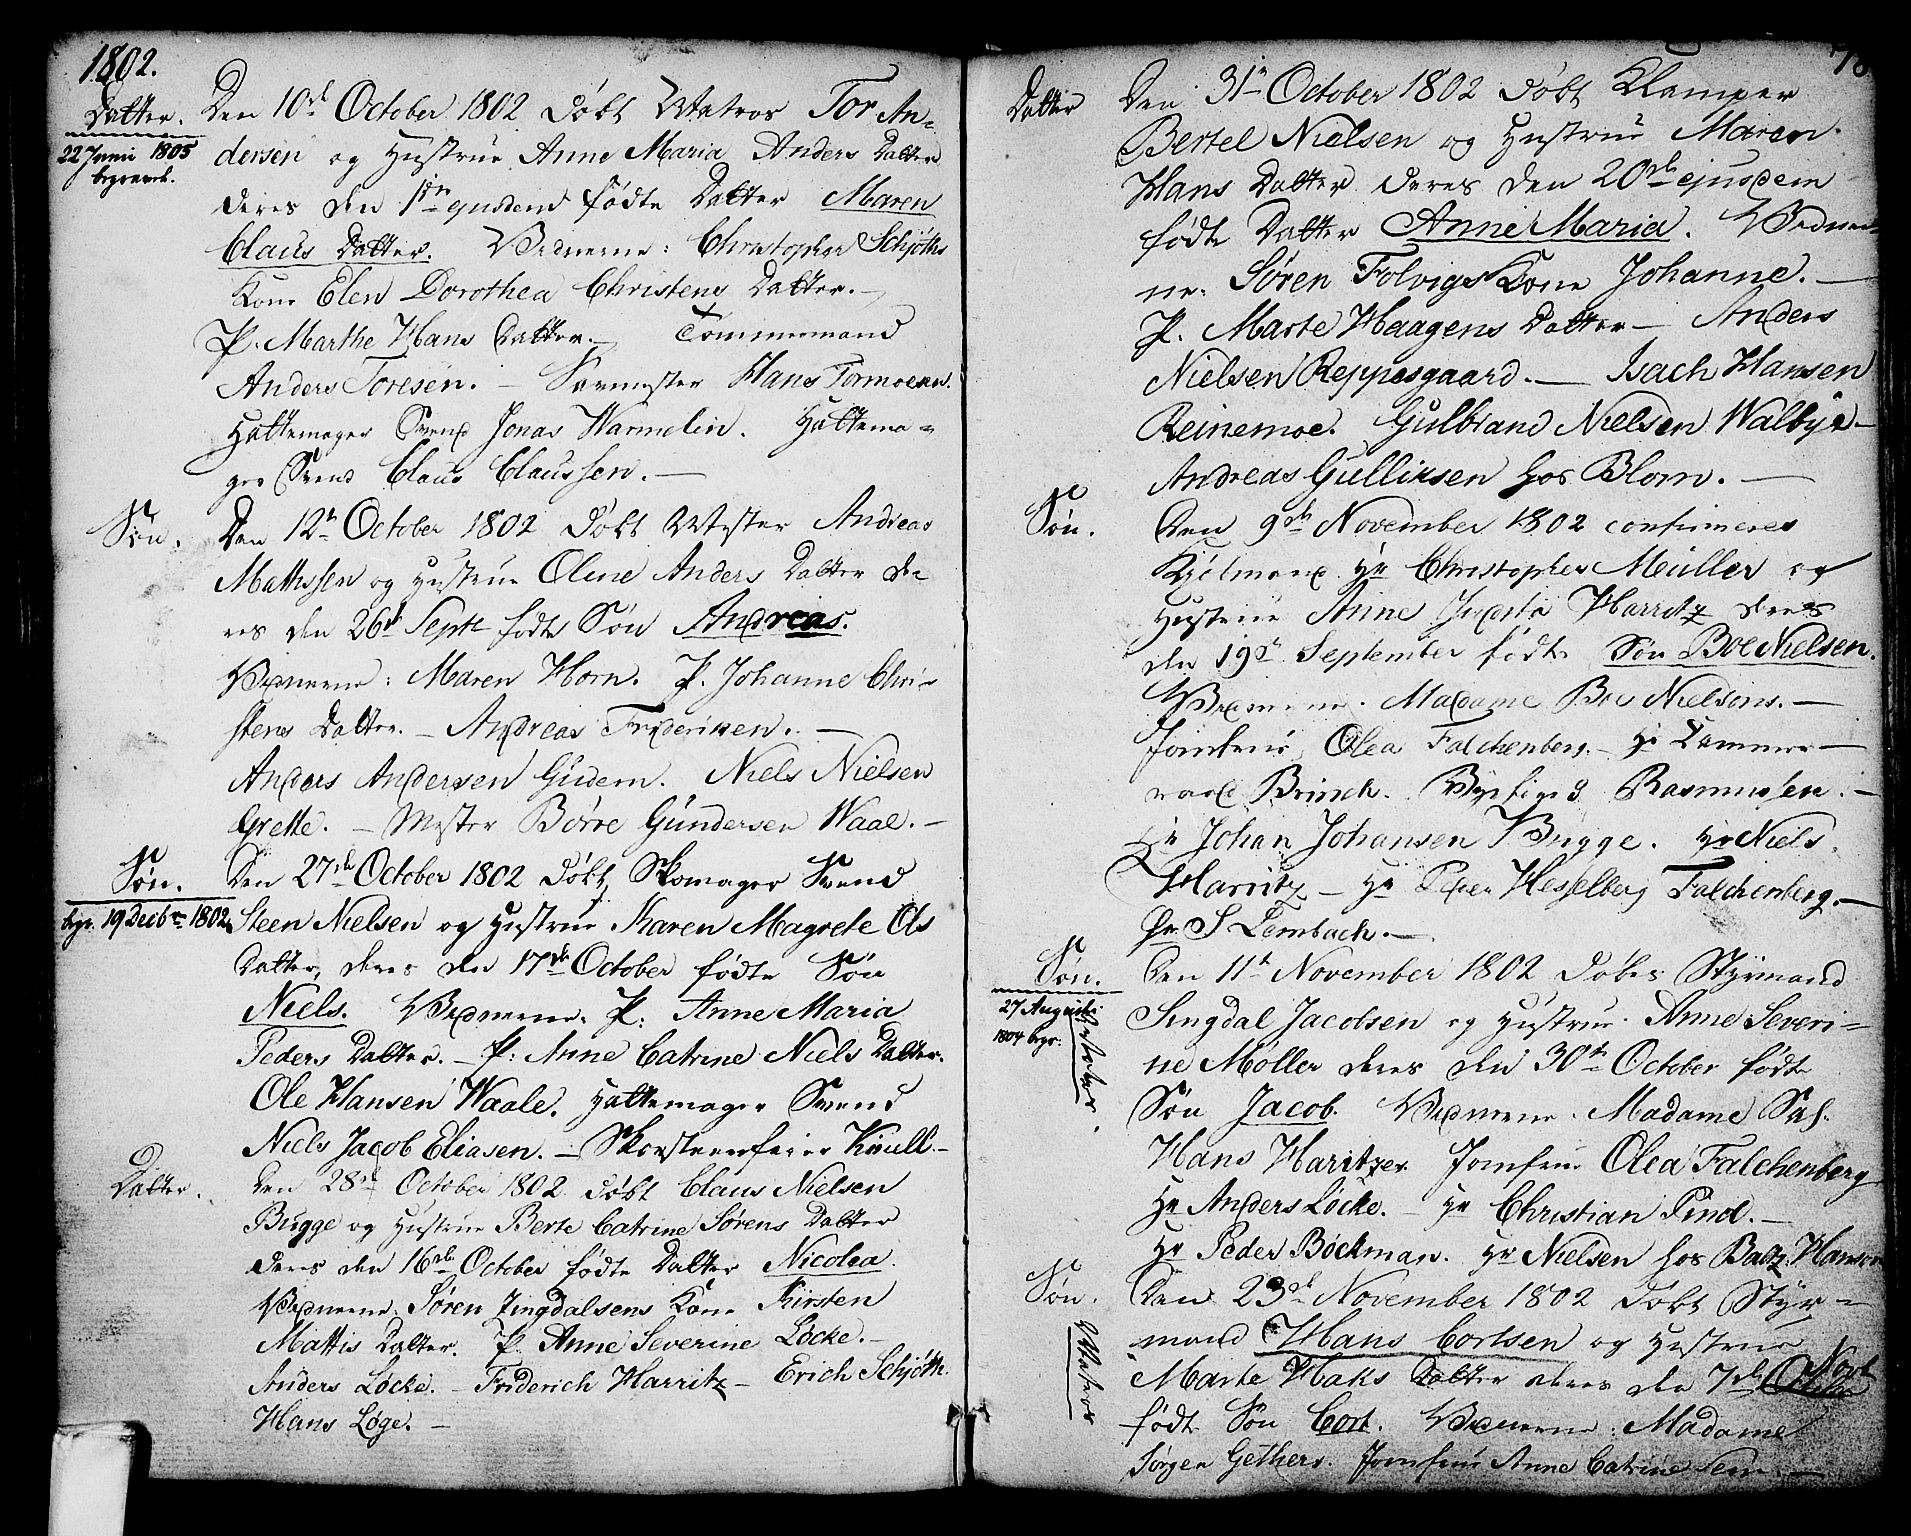 1802.
Datter.
22 Junii 1805
begravet.
Den 10de October 1802 Døbt Matros Tor An=
dersen og Hustrue Anne Maria Anders Datter
deres den 1ste ejusdem fødte Datter Maren
Claus Datter. Vidnerne: Christopher Schjøths
Kone Elen Dorothea Christens Datter. —
P. Marthe Hans Datter. — Tømmermand
Anders Toresen. — Hans Tormoesen.
Hattemager Svend Jonas Warmelin. Hattema=
ger Svend Claus Claussen. —
Søn.
Den 12te October 1802 Døbt Mester Andreas
Mathssen og Hustrue Oline Anders Datter de=
res den 26de Septr fødte Søn Andreas.
Vidnerne: Maren Horn. P. Johanne Chri=
stens Datter. — Andreas Frideriksen. —
Anders Andersen Gudem. Niels Nielsen
Grette. — Mester Børre Gundersen Waal. —
Søn.
begr. 19 Decbr 1802.
Den 27de October 1802 Døbt Skomager Svend
Steen Nielsen og Hustrue Karen Magrete Ols
Datter, deres den 17de October fødte Søn
Niels. Vidnerne. P. Anne Maria
Peders Datter. — P. Anne Catrine Niels Datter.
Ole Hansen Waale. Hattemager Svend
Niels Jacob Eliasen. — Skorsteenfeier Krull. —
Datter.
Den 28de October 1802 Døbt Claus Nielsen
Bugge og Hustrue Berte Catrine Sørens Datter
deres den 16de October fødte Datter Nicolea.
Vidnerne. Søren Zingdalsens Kone Kirsten
Mattis Datter. P. Anne Severine Løcke. —
Anders Løcke. — Friderich Harritz — Erich Schjøth.
Hans Løge. —
78
Datter
Den 31te October 1802 Døbt Klamper
Bertel Nielsen og Hustrue Maren
Hans Datter deres den 20de ejusdem
fødte Datter Anne Maria. Vidner=
ne. Søren Folvigs Kone Johanne. —
P. Marte Haagens Datter — Anders
Nielsen Reppesgaard. — Isach Hansen
Reinemoe. Gulbrand Nielsen Walbye —
Andreas Gulliksen hos Blom. —
Søn.
Den 9de November 1802 confirmeres
Kjølmand Hr Christopher Müller og
Hustrue Anne Harritz deres
den 19de September fødte Søn Boe Nielsen.
Vidnerne. Madame Boe Nielsens. —
Jomfrue Olea Falchenberg. — Hr Kammer=
raad Brinch. Byefoged Rasmussen. —
Hr Johan Johansen Bugge. Hr Niels
Harritz — Hr Peter Hesselberg Falchenberg. —
Hr S Lembach. —
Søn.
27 Augusti
1804 begr:
Den 11te November 1802 Døbes Styrmand
Singdal Jacobsen og Hustrue Anne Severi=
ne Møller deres den 30te October fødte
Søn Jacob. Vidnerne. Madame Sal.
Hans Haritzes Jomfrue Olea Falchenberg
Hr Anders Løcke. — Hr Christian Pind. —
Hr Peder Bøckman. Hr Nielsen hos Baltz. Hansen
Søn.
Matros
Den 23de November 1802 Døbt Styr=
mand Hans Cortsen og Hustrue
Marte Haks Datter deres den 7de Novbr
født Søn Cort. Vidnerne: Madame
Jørgen Gethers. Jomfrue Anne Catrine Sem. —